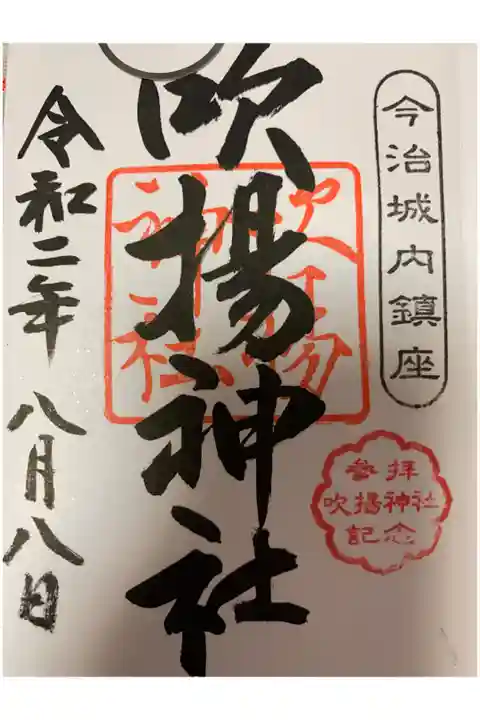 今治城内鎮座
参拝
吹揚神社
記念
吹揚神社
吹揚神社
令和二年 八月八日